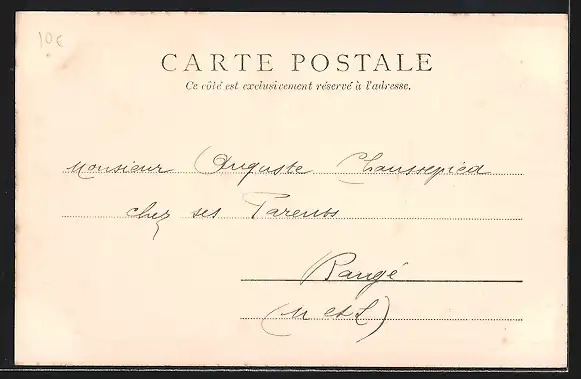 10€
CARTE POSTALE
Ce côté est exclusivement réservé à l'adresse.
Monsieur Auguste Chaussepied
chez ses Parents
Baugé
(M et L)